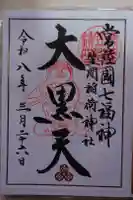 常陸國七福神
笠間稲荷神社
大黒天
令和八年三月二十六日